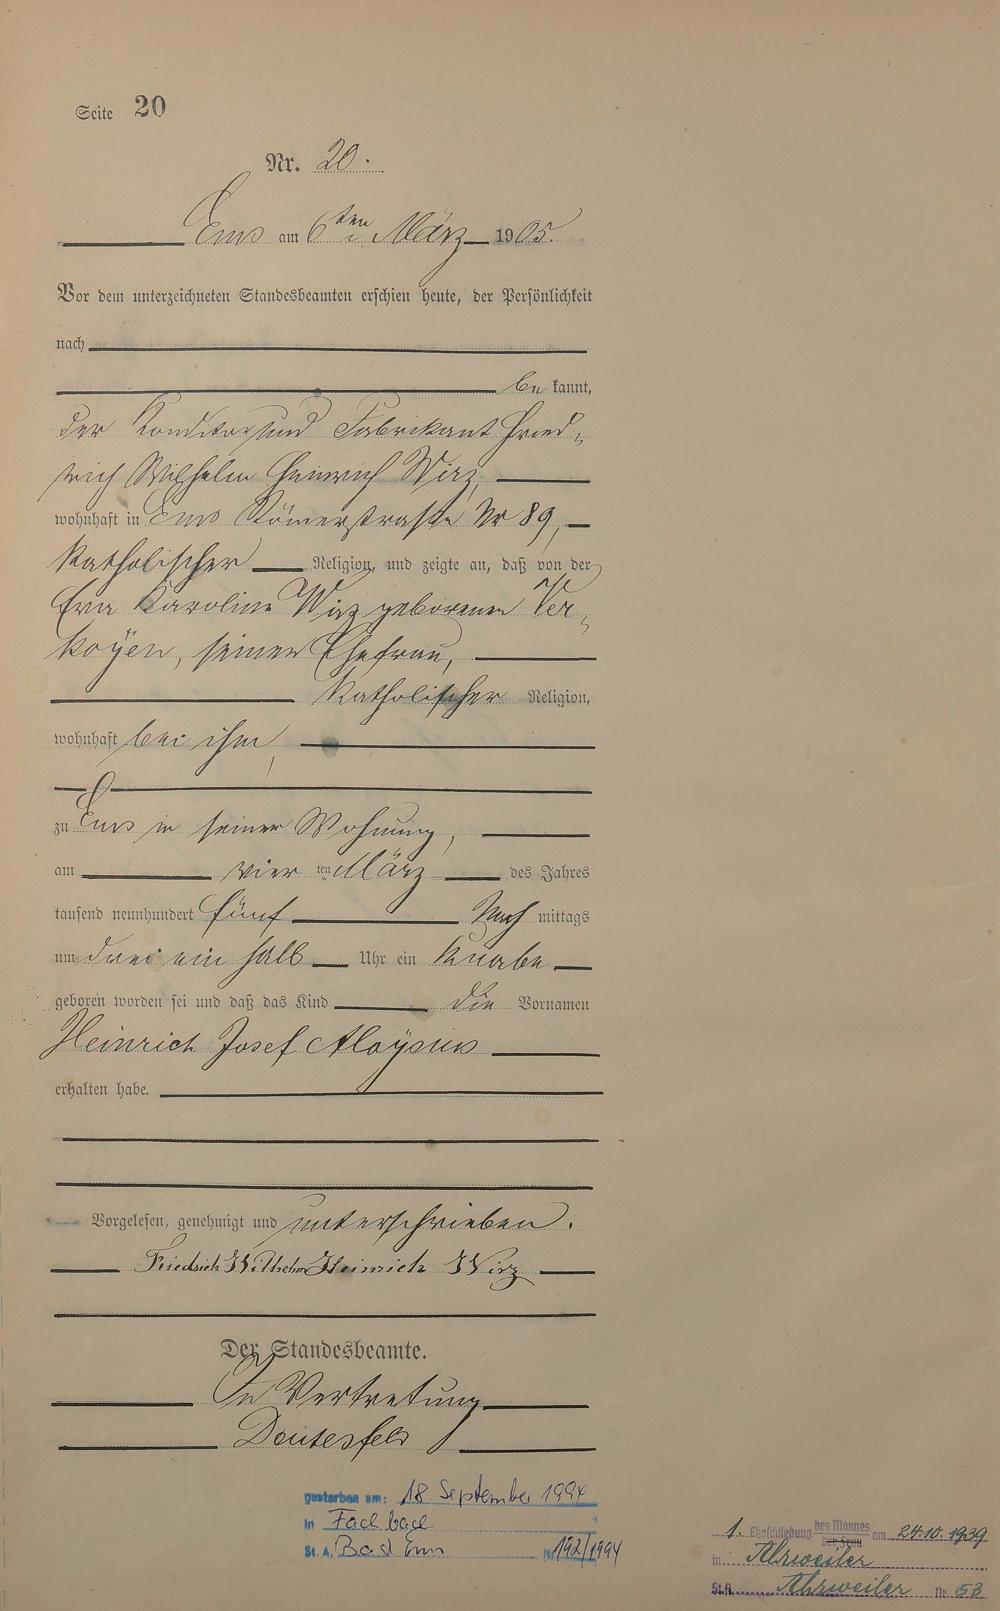 Seite 20
Nr. 20.
Ems am 6ten März 1905.
Vor dem unterzeichneten Standesbeamten erschien heute, der Persönlichkeit
nach
be kannt,
der Konditor und Fabrikant Fried-
rich Wilhelm Heinrich Wirz,
wohnhaft in Ems Römerstraße Nr 89,
katholischer Religion, und zeigte an, daß von der
Eva Karoline Wirz geborenen Ver-
koÿen, seiner Ehefrau,
katholischer Religion,
wohnhaft bei ihm,
zu Ems in seiner Wohnung,
am vier ten März des Jahres
tausend neunhundert fünf Nach mittags
um drei ein halb Uhr ein Knabe
geboren worden sei und daß das Kind die Vornamen
Heinrich Josef Aloÿsius
erhalten habe.
Vorgelesen, genehmigt und unterschrieben.
Friedrich Wilhelm Heinrich Wirz
Der Standesbeamte.
In Vertretung
Deutesfeld
gestorben am: 18. September 1994
in Fachbach
St. A. Bad Ems Nr. 192/1994
1. Eheschließung des Mannes der Frau am 24.10.1939
in Ahrweiler
St.A. Ahrweiler Nr. 53